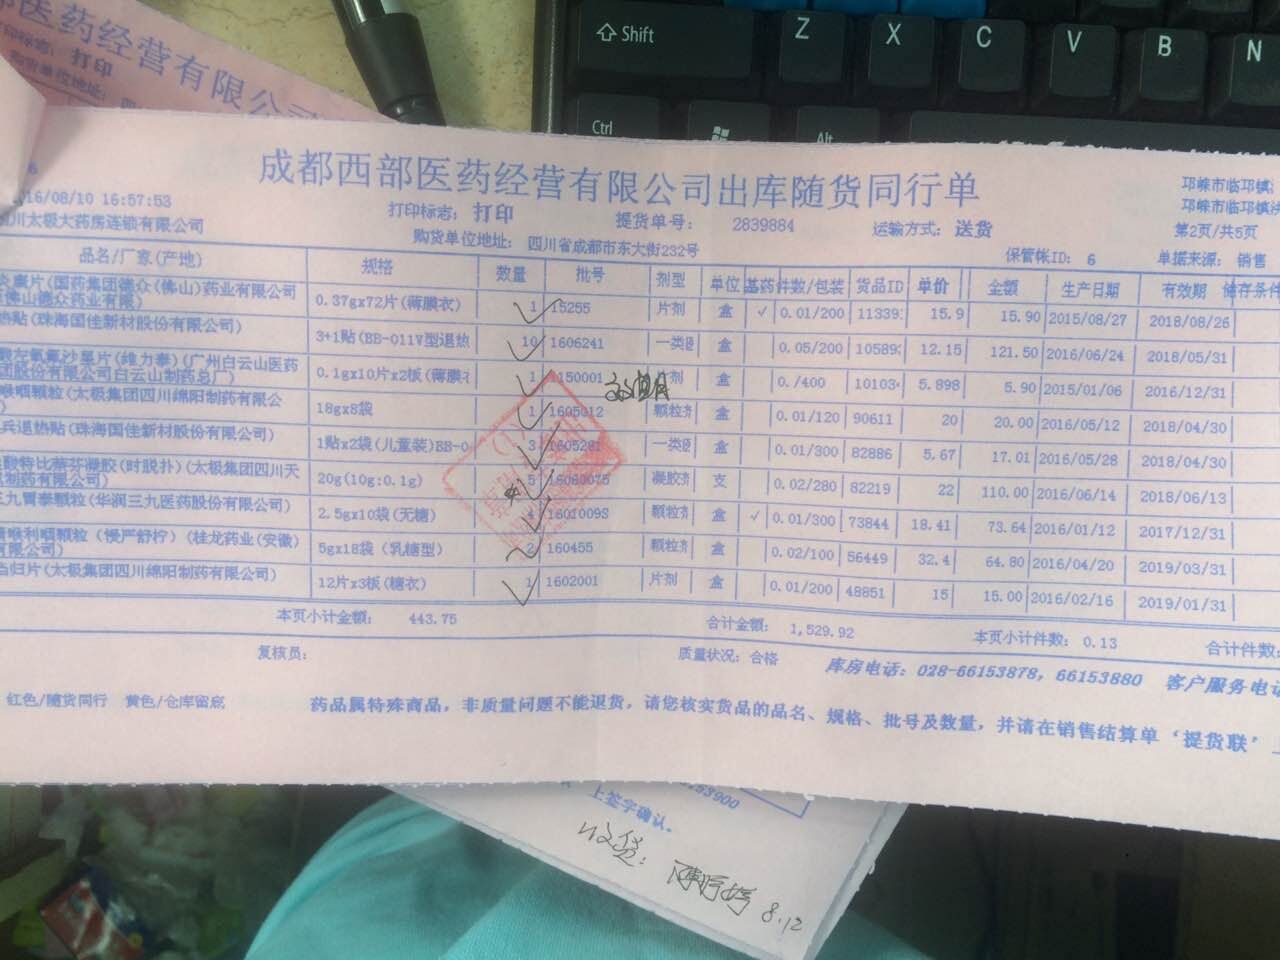 Shift
Z
X
C
V
B
N
Ctrl
Alt
医药经营有限公司
打印
购货单位地址:
成都西部医药经营有限公司出库随货同行单
16/08/10 16:57:53
打印标志: 打印
提货单号: 2839884
运输方式: 送货
邛崃市临邛镇
邛崃市临邛镇
第2页/共5页
川太极大药房连锁有限公司
购货单位地址: 四川省成都市东大街232号
保管帐ID: 6
单据来源: 销售
品名/厂家(产地) 规格 数量 批号 剂型 单位 基药 件数/包装 货品ID 单价 金额 生产日期 有效期 储存条件
炎康片(国药集团德众(佛山)药业有限公司 佛山德众药业有限) 0.37gx72片(薄膜衣) 1 15255 片剂 盒 ✓ 0.01/200 11339 15.9 15.90 2015/08/27 2018/08/26
热贴(珠海国佳新材股份有限公司) 3+1贴(BB-011V型退热 10 1606241 一类医 盒 0.05/200 10589 12.15 121.50 2016/06/24 2018/05/31
酸左氧氟沙星片(维力泰)(广州白云山医药 团股份有限公司白云山制药总厂) 0.1gx10片x2板(薄膜衣 1 150001 剂 盒 0./400 10103 5.898 5.90 2015/06/01 2016/12/31
喉咽颗粒(太极集团四川绵阳制药有限公 18gx8袋 1 1605012 颗粒剂 盒 0.01/120 90611 20 20.00 2016/05/12 2018/04/30
兵退热贴(珠海国佳新材股份有限公司) 1贴x2袋(儿童装)BB-0 3 1605281 一类医 盒 0.01/300 82886 5.67 17.01 2016/05/28 2018/04/30
酸特比萘芬凝胶(时脱扑)(太极集团四川天 制药有限公司) 20g(10g:0.1g) 5 16060075 凝胶剂 支 0.02/280 82219 22 110.00 2016/06/14 2018/06/13
三九胃泰颗粒(华润三九医药股份有限公司) 2.5gx10袋(无糖) 4 1601009S 颗粒剂 盒 ✓ 0.01/300 73844 18.41 73.64 2016/01/12 2017/12/31
清喉利咽颗粒(慢严舒柠)(桂龙药业(安徽) 有限公司) 5gx18袋(乳糖型) 2 160455 颗粒剂 盒 0.02/100 56449 32.4 64.80 2016/04/20 2019/03/31
当归片(太极集团四川绵阳制药有限公司) 12片x3板(糖衣) 1 1602001 片剂 盒 0.01/200 48851 15 15.00 2016/02/16 2019/01/31
本页小计金额: 443.75
合计金额: 1,529.92
本页小计件数: 0.13
合计件数:
复核员:
质量状况: 合格
库房电话: 028-66153878, 66153880 客户服务电话
红色/随货同行 黄色/仓库留底
药品属特殊商品,非质量问题不能退货,请您核实货品的品名、规格、批号及数量,并请在销售结算单‘提货联’
53900
上签字确认。
收货:
8.12